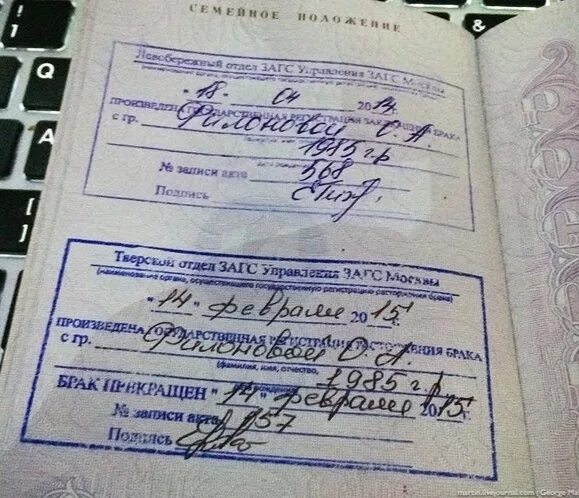 СЕМЕЙНОЕ ПОЛОЖЕНИЕ
Левобережный отдел ЗАГС Управления ЗАГС Москвы
"18" 04 2014г.
ПРОИЗВЕДЕНА ГОСУДАРСТВЕННАЯ РЕГИСТРАЦИЯ ЗАКЛЮЧЕНИЯ БРАКА
с гр. Филоновой С. А.
1985 г.р
№ записи акта 568
Подпись
Тверской отдел ЗАГС Управления ЗАГС Москвы
(наименование органа, осуществляющего государственную регистрацию расторжения брака)
"14" февраля 2015г.
ПРОИЗВЕДЕНА ГОСУДАРСТВЕННАЯ РЕГИСТРАЦИЯ РАСТОРЖЕНИЯ БРАКА
с гр. Филоновой А.
(фамилия, имя, отчество,
1985 г.р
БРАК ПРЕКРАЩЕН "14" февраля 2015г.
№ записи акта 157
Подпись
Q
A
&
martin.livejournal.com / George Ma